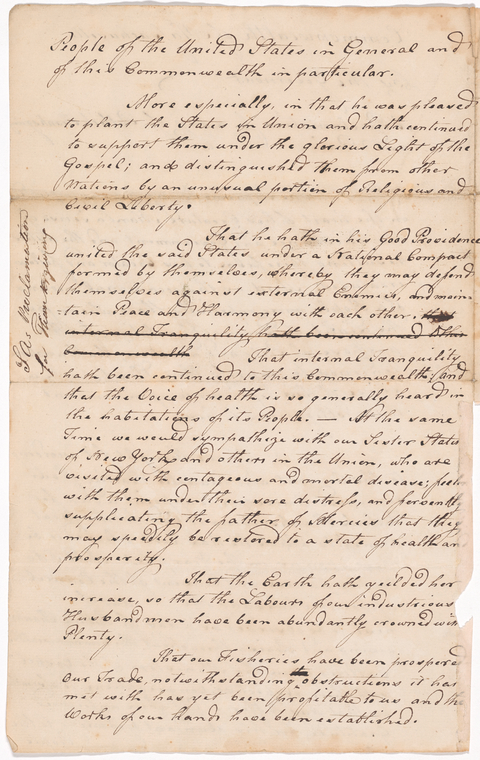 People of the United States in General and
of this Commonwealth in particular.
More especially, in that he was pleased
to plant the States in Union and hath continued
to support them under the glorious Light of the
Gospel; and distinguished them from other
Nations by an unusual portion of Religious and
Civil Liberty.
That he hath in his Good Providence
united the said States under a National Compact
formed by themselves, whereby they may defend
themselves against external Enemies, and main-
tain Peace and Harmony with each other. That
internal Tranquility hath been continued to this
Commonwealth That internal Tranquility
hath been continued to this Commonwealth; and
that the Voice of health is so generally heard in
the habitations of its People. — At the same
Time we would sympathize with our Sister State
of New York and others in the Union, who are
visited with contageous and mortal disease; feeling
with them under their sore distress, and fervently
supplicating the father of Mercies that they
may speedily be restored to a state of health and
prosperity.
That the Earth hath yeilded her
increase, so that the Labours of our industrious
Husbandmen have been abundantly crowned with
Plenty.
That our Fisheries have been prospered
Our Trade, notwithstanding the obstructions it has
met with has yet been profitable to us and the
Works of our hands have been established.
S. As Proclamation
for Thanksgiving